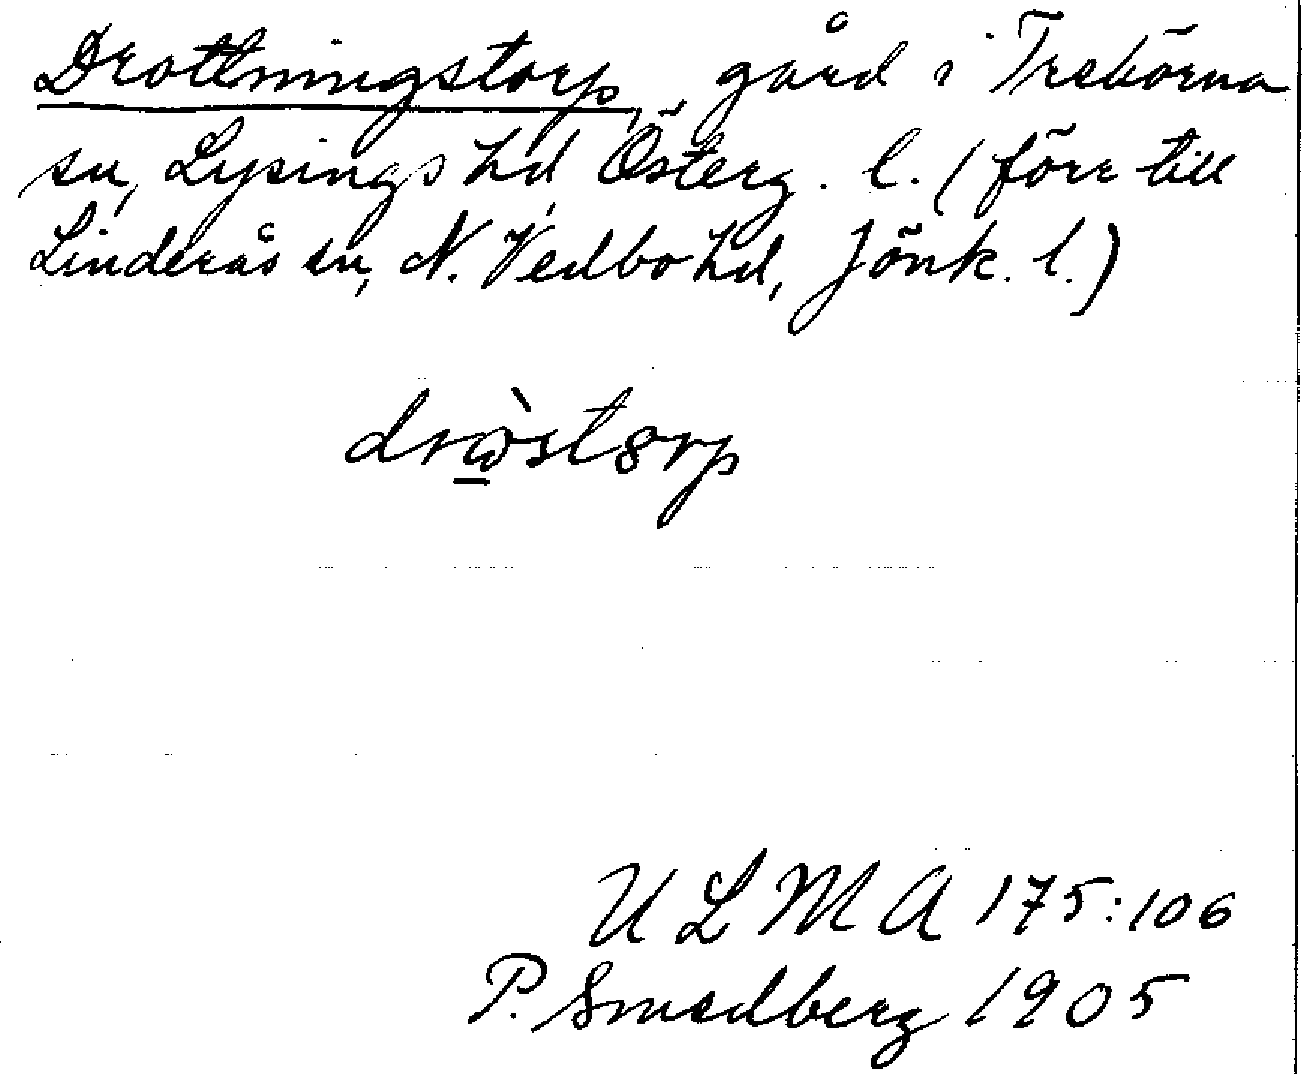 Drottningstorp, gård i Trehörna
sn, Lysings hd, Österg. l. (förr till
Linderås sn, N. Vedbo hd, Jönk. l.)
drὼ̱stȣrp
ULMA 175:106
P. Smedberg 1905